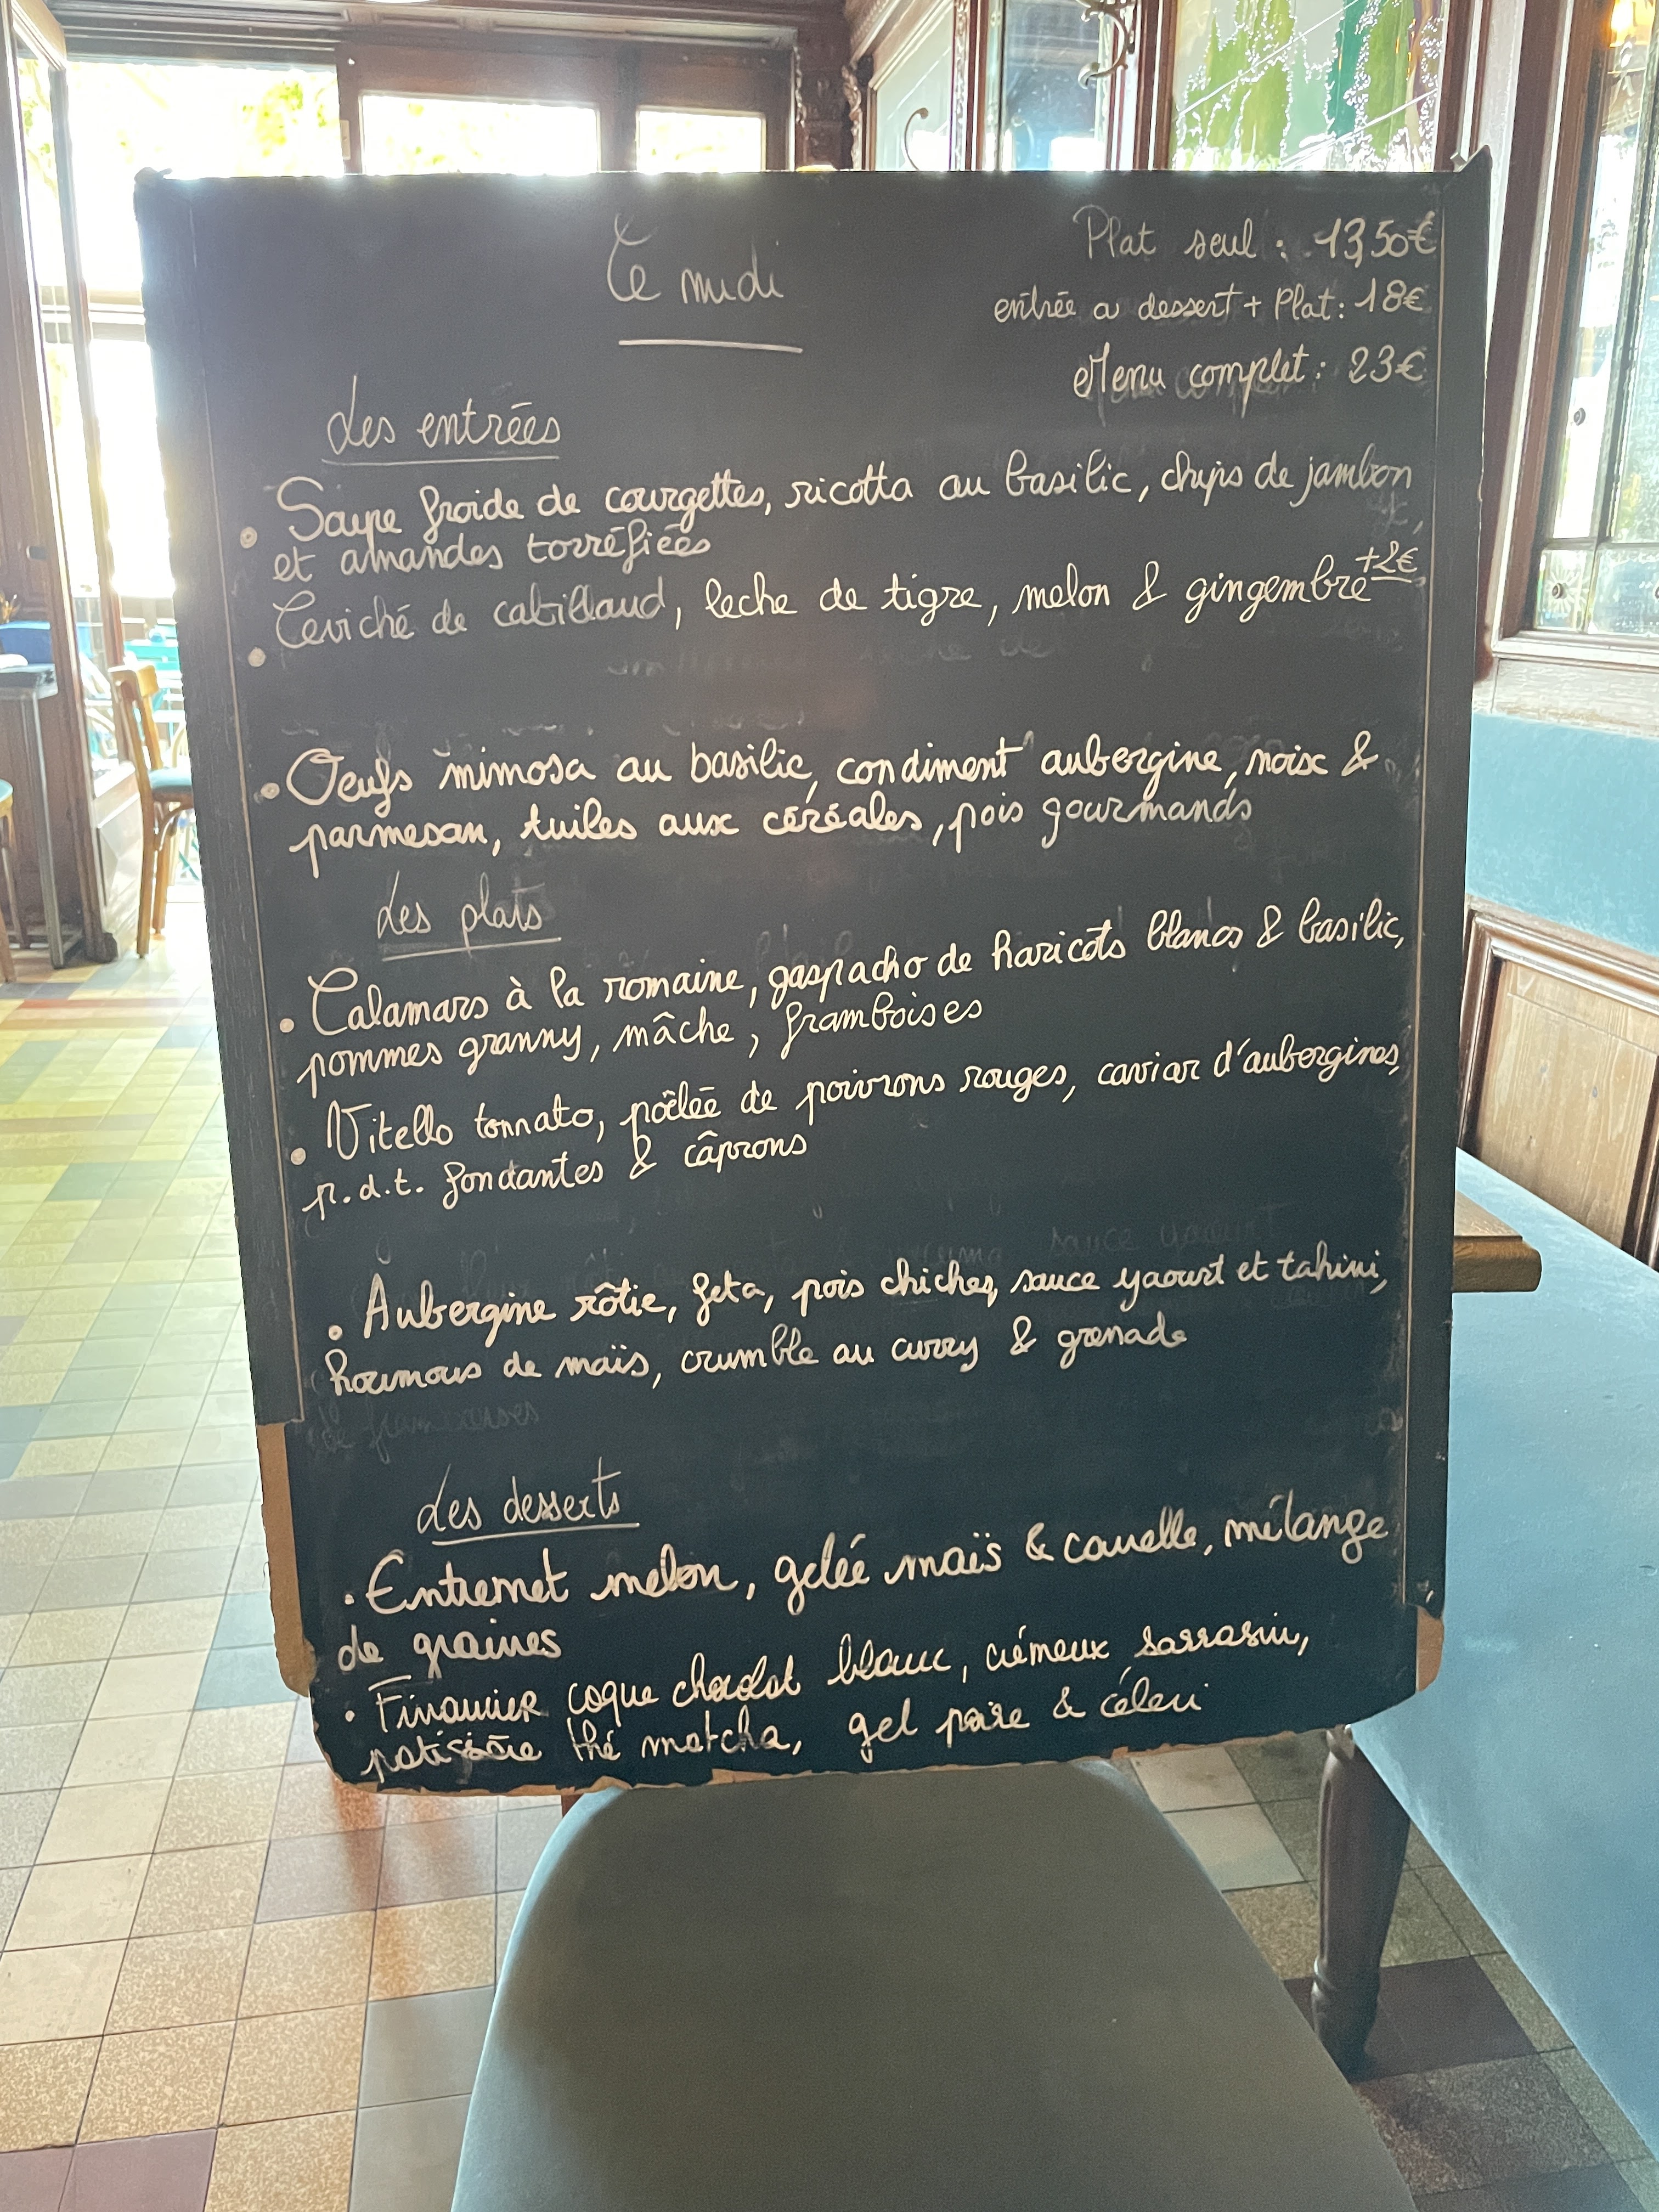 Ce midi
Plat seul : 13,50€
entrée ou dessert + Plat : 18€
Menu complet : 23€
Les entrées
• Soupe froide de courgettes, ricotta au basilic, chips de jambon
et amandes torréfiées
• Ceviché de cabillaud, leche de tigre, melon & gingembre +2€
• Oeufs mimosa au basilic, condiment aubergine, noix &
parmesan, tuiles aux céréales, pois gourmands
Les plats
• Calamars à la romaine, gaspacho de haricots blancs & basilic,
pommes granny, mâche, framboises
• Vitello tonnato, pôêlée de poivrons rouges, caviar d'aubergines,
p.d.t. fondantes & câprons
• Aubergine rôtie, feta, pois chiches, sauce yaourt et tahini,
houmous de maïs, crumble au curry & grenade
Les desserts
• Entremet melon, gelée maïs & cannelle, mélange
de graines
• Financier coque chocolat blanc, crémeux sarrasin,
patissière thé matcha, gel poire & céleri